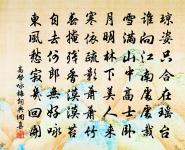 瓊姿只合在瑤臺
誰向江南處處栽
雪滿山中高士臥
月明林下美人來
寒依疏影蕭蕭竹
春掩殘香漠漠苔
自去何郎無好詠
東風愁寂幾回開